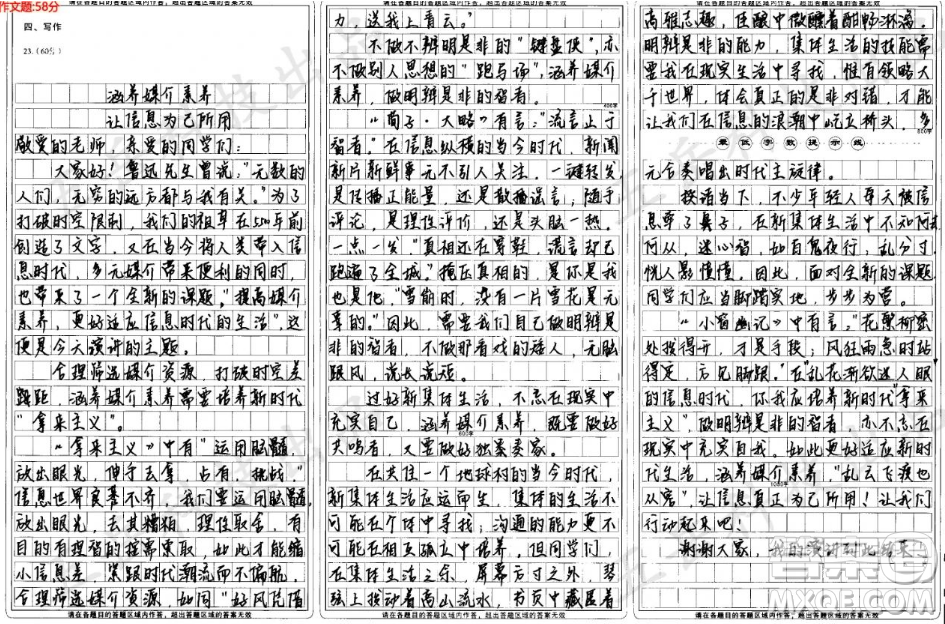 作文题:58分
请在各题目的答题区域内作答，超出答题区域的答案无效
四、写作
23.（60分）
涵养媒介素养
让信息为己所用
敬爱的老师，亲爱的同学们：
大家好！鲁迅先生曾说，“无数的
人们，无穷的远方都与我有关。”为了
打破时空限制，我们的祖辈在5500年前
创造了文字，又在当今将人类带入信
息时代，多元媒介带来便利的同时，
也带来了一个全新的课题。“提高媒介
素养，更好适应信息时代的生活”，这
便是今天演讲的主题。
合理筛选媒介资源，打破时空差
距，涵养媒介素养需要培养新时代
“拿来主义”。
《拿来主义》中有“运用脑髓，
放出眼光，伸手去拿，占有，挑战。”
信息世界良莠不齐，我们要运用脑髓，
放出眼光，去其糟粕，理性取舍，有
目的有理智的按需索取，如此才能缩
小信息差，紧跟时代潮流而不偏航，
合理筛选媒介资源，如同“好风凭借
请在各题目的答题区域内作答，超出答题区域的答案无效
请在各题目的答题区域内作答，超出答题区域的答案无效
力，送我上青云。”
不做不辨明是非的“键盘侠”，亦
不做别人思想的“跑马场”，涵养媒介
素养，做明辨是非的智者。
400字
《荀子·大略》有言：“流言止于
智者。”在信息纵横的当今时代，新闻
新片新鲜事无不引人关注，一键转发，
是传播正能量，还是散播谣言；随手
评论，是理性评价，还是头脑一热。
一点一发“真相还在穿鞋，谎言却已
跑遍了全城”掩在真相的，是你是我
也是他，“雪崩时，没有一片雪花是无
辜的。”因此，需要我们自己做明辨是
非的智者，不做那看戏的矮人，无脑
跟风，说长说短。
过好新集体生活，不忘在现实中
充实自己，涵养媒介素养，既要做好
共鸣者，又要做好独奏奏家。
600字
在共住一个地球村的当今时代，
新集体生活应运而生，集体的生活不
可能在个体中寻找；沟通的能力更不
可能在相互孤立中培养，但同学们，
在集体生活之余，屏幕方寸之外，琴
弦上拨动着高山流水，书页中藏匿着
请在各题目的答题区域内作答，超出答题区域的答案无效
请在各题目的答题区域内作答，超出答题区域的答案无效
高雅志趣，佳酿中做醺着酣畅淋漓。
明辨是非的能力，集体生活的技能需
要我在现实生活中寻找，惟有领略大
千世界，体会真正的是非对错，才能
让我们在信息的浪潮中屹立桥头，多
800字
最低字数提示线
元合奏唱出时代主旋律。
按诸当下，不少年轻人整天被信
息牵了鼻子，在新集体生活中不知何去
何从，迷心智，如百鬼夜行，乱分寸，
恍人影憧憧，因此，面对全新的课题，
同学们应当脚踏实地，步步为营。
《小窗幽记》中有言：“花繁柳密
处拨得开，才是手段；风狂雨急时站
得定，方见脚跟。”在“乱花渐欲迷人眼”
的信息时代，你我应培养新时代“拿来
主义”，做明辨是非的智者，亦不忘在
现实中充实自我。如此更好适应新时
代生活，涵养媒介素养，“乱云飞渡也
从容”，让信息真正为己所用！让我们
1000字
行动起来吧！
谢谢大家，我的演讲到此结束。
请在各题目的答题区域内作答，超出答题区域的答案无效